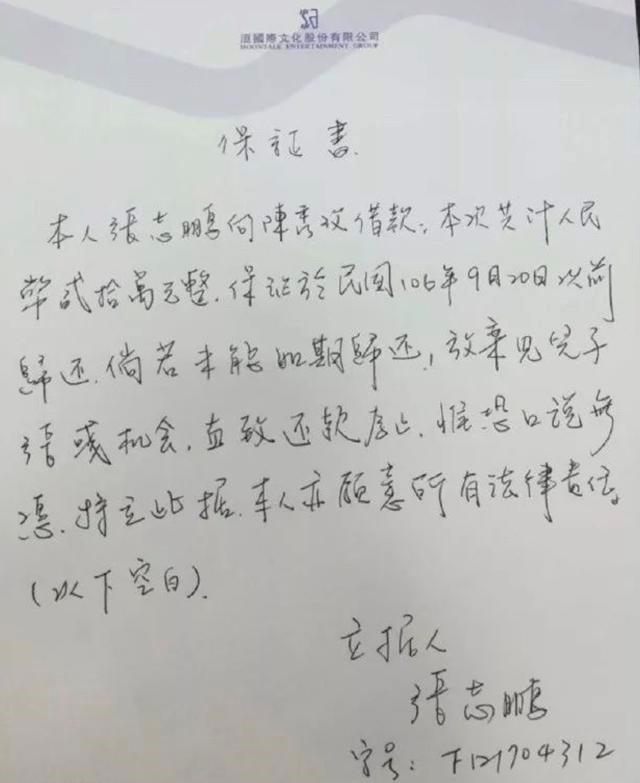 洹國際文化股份有限公司
MOONTALE ENTERTAINMENT GROUP
保証書
本人張志鵬向陳秀玫借款,本次共计人民
幣贰拾萬元整.保证於民国106年9月20日以前
歸还.倘若未能如期歸还,放棄见兒子
張彧机会,直致还款為止.惟恐口说無
憑.特立此据.本人亦願意所有法律责任。
(以下空白).
立据人
張志鵬
字号:F121704312